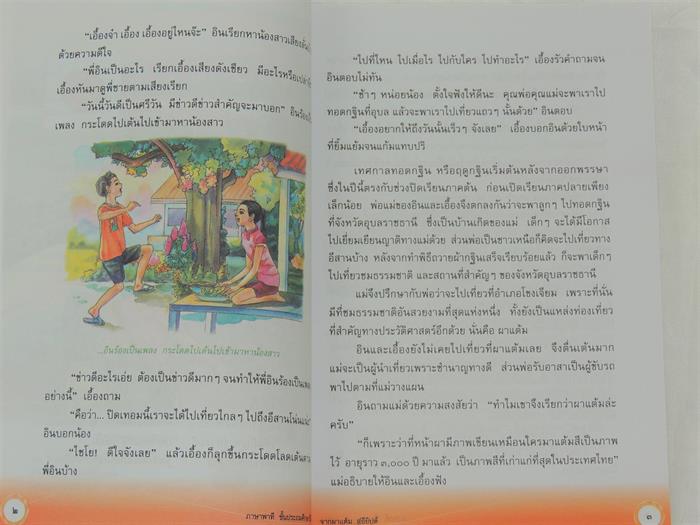 “เอื้องจ๋า เอื้อง เอื้องอยู่ไหนจ๊ะ” อินเรียกหาน้องสาวเสียงดัง
ด้วยความดีใจ
“พี่อินเป็นอะไร เรียกเอื้องเสียงดังเชียว มีอะไรหรือ
เอื้องหันมาดูพี่ชายตามเสียงเรียก
“วันนี้วันดีเป็นศรีวัน มีข่าวดีข่าวสำคัญจะมาบอก” อินร้อง
เพลง กระโดดไปเต้นไปเข้ามาหาน้องสาว
...อินร้องเป็นเพลง กระโดดไปเต้นไปเข้ามาหาน้องสาว
“ข่าวดีอะไรเอ่ย ต้องเป็นข่าวดีมากๆ จนทำให้พี่อินร้องเป็นเพลง
อย่างนี้” เอื้องถาม
“คือว่า... ปิดเทอมนี้เราจะได้ไปเที่ยวไกลๆ ไปถึงอีสานโน่นแน่ะ”
อินบอกน้อง
“ไชโย! ดีใจจังเลย” แล้วเอื้องก็ลุกขึ้นกระโดดโลดเต้น
พี่อินบ้าง
๒
ภาษาพาที ชั้นประถมศึกษา
“ไปที่ไหน ไปเมื่อไร ไปกับใคร ไปทำอะไร” เอื้องรัวคำถามจน
อินตอบไม่ทัน
“ช้าๆ หน่อยน้อง ตั้งใจฟังให้ดีนะ คุณพ่อคุณแม่จะพาเราไป
ทอดกฐินที่อุบล แล้วจะพาเราไปเที่ยวแถวๆ นั้นด้วย” อินตอบ
“เอื้องอยากให้ถึงวันนั้นเร็วๆ จังเลย” เอื้องบอกอินด้วยใบหน้า
ที่ยิ้มแย้มจนแก้มแทบปริ
เทศกาลทอดกฐิน หรือฤดูกฐินเริ่มต้นหลังจากออกพรรษา
ซึ่งในปีนี้ตรงกับช่วงปิดเรียนภาคต้น ก่อนเปิดเรียนภาคปลายเพียง
เล็กน้อย พ่อแม่ของอินและเอื้องจึงตกลงกันว่าจะพาลูกๆ ไปทอดกฐิน
ที่จังหวัดอุบลราชธานี ซึ่งเป็นบ้านเกิดของแม่ เด็กๆ จะได้มีโอกาส
ไปเยี่ยมเยียนญาติทางแม่ด้วย ส่วนพ่อเป็นชาวเหนือก็คิดจะไปเที่ยวทาง
อีสานบ้าง หลังจากทำพิธีถวายผ้ากฐินเสร็จเรียบร้อยแล้ว ก็จะพาเด็กๆ
ไปเที่ยวชมธรรมชาติ และสถานที่สำคัญๆ ของจังหวัดอุบลราชธานี
แม่จึงปรึกษากับพ่อว่าจะไปเที่ยวที่อำเภอโขงเจียม เพราะที่นั่น
มีที่ชมธรรมชาติอันสวยงามที่สุดแห่งหนึ่ง ทั้งยังเป็นแหล่งท่องเที่ยว
ที่สำคัญทางประวัติศาสตร์อีกด้วย นั่นคือ ผาแต้ม
อินและเอื้องยังไม่เคยไปเที่ยวที่ผาแต้มเลย จึงตื่นเต้นมาก
แม่จะเป็นผู้นำเที่ยวเพราะชำนาญทางดี ส่วนพ่อรับอาสาเป็นผู้ขับรถ
พาไปตามที่แม่วางแผน
อินถามแม่ด้วยความสงสัยว่า “ทำไมเขาจึงเรียกว่าผาแต้มล่ะ
ครับ”
“ก็เพราะว่าที่หน้าผามีภาพเขียนเหมือนใครมาแต้มสีเป็นภาพ
ไว้ อายุราว ๓,๐๐๐ ปี มาแล้ว เป็นภาพสีที่เก่าแก่ที่สุดในประเทศไทย”
แม่อธิบายให้อินและเอื้องฟัง
จากผาแต้ม สู่อียิปต์
๓